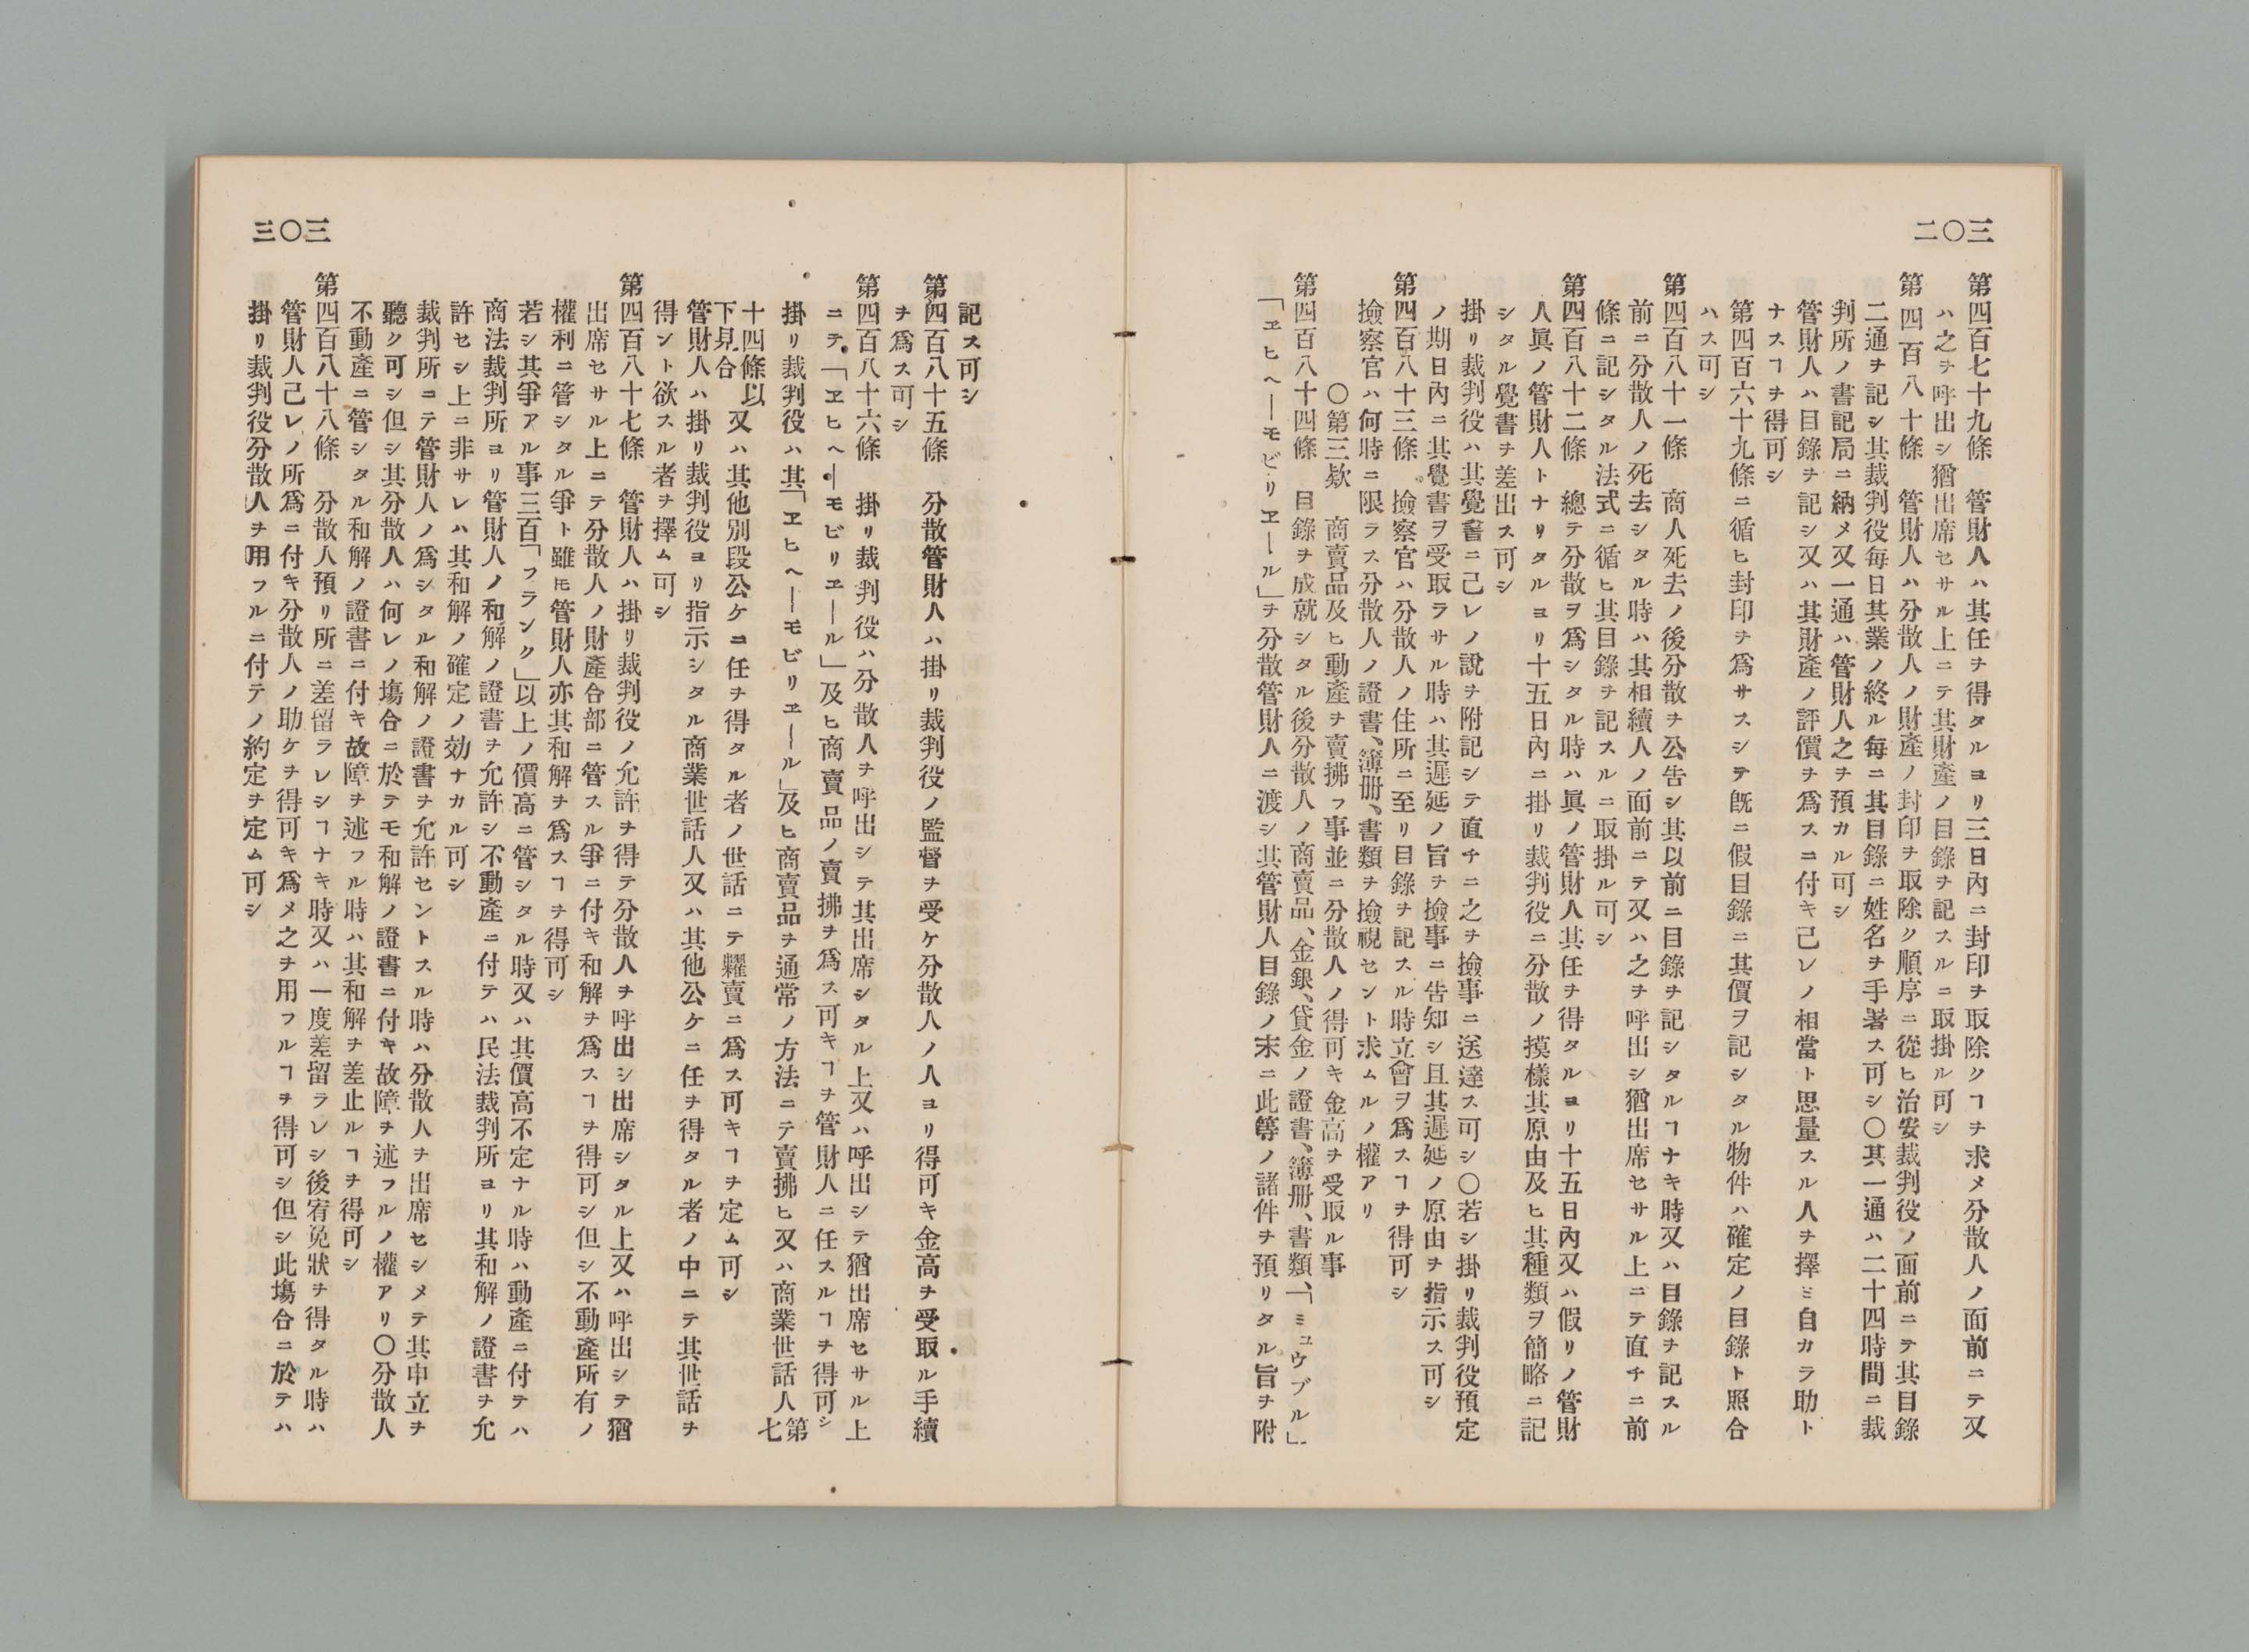 三〇二
第四百七十九條　管財人ハ其任ヲ得タルヨリ三日內ニ封印ヲ取除クヿヲ求メ分散人ノ面前ニテ又
ハ之ヲ呼出シ猶出席セサル上ニテ其財產ノ目錄ヲ記スルニ取掛ル可シ
第四百八十條　管財人ハ分散人ノ財產ノ封印ヲ取除ク順序ニ從ヒ治安裁判役ノ面前ニテ其目錄
二通ヲ記シ其裁判役每日其業ノ終ル每ニ其目錄ニ姓名ヲ手署ス可シ〇其一通ハ二十四時間ニ裁
判所ノ書記局ニ納メ又一通ハ管財人之ヲ預カル可シ
管財人ハ目錄ヲ記シ又ハ其財產ノ評價ヲ爲スニ付キ己レノ相當ト思量スル人ヲ擇ミ自カラ助ト
ナスヿヲ得可シ
第四百六十九條ニ循ヒ封印ヲ爲サスシテ既ニ假目錄ニ其價ヲ記シタル物件ハ確定ノ目錄ト照合
ハス可シ
第四百八十一條　商人死去ノ後分散ヲ公告シ其以前ニ目錄ヲ記シタルヿナキ時又ハ目錄ヲ記スル
前ニ分散人ノ死去シタル時ハ其相續人ノ面前ニテ又ハ之ヲ呼出シ猶出席セサル上ニテ直チニ前
條ニ記シタル法式ニ循ヒ其目錄ヲ記スルニ取掛ル可シ
第四百八十二條　總テ分散ヲ爲シタル時ハ眞ノ管財人其任ヲ得タルヨリ十五日內又ハ假リノ管財
人眞ノ管財人トナリタルヨリ十五日內ニ掛リ裁判役ニ分散ノ摸樣其原由及ヒ其種類ヲ簡略ニ記
シタル覺書ヲ差出ス可シ
掛リ裁判役ハ其覺書ニ己レノ說ヲ附記シテ直チニ之ヲ撿事ニ送達ス可シ〇若シ掛リ裁判役預定
ノ期日內ニ其覺書ヲ受取ラサル時ハ其遲延ノ旨ヲ撿事ニ吿知シ且其遲延ノ原由ヲ指示ス可シ
第四百八十三條　撿察官ハ分散人ノ住所ニ至リ目錄ヲ記スル時立會ヲ爲スヿヲ得可シ
撿察官ハ何時ニ限ラス分散人ノ證書、簿册、書類ヲ撿視セント求ムルノ權アリ
〇第三欵　商賣品及ヒ動產ヲ賣拂フ事並ニ分散人ノ得可キ金高ヲ受取ル事
第四百八十四條　目錄ヲ成就シタル後分散人ノ商賣品、金銀、貸金ノ證書、簿册、書類、「ミュウブル」
「ヱヒヘーモビリヱール」ヲ分散管財人ニ渡シ其管財人目錄ノ末ニ此等ノ諸件ヲ預リタル旨ヲ附
三〇三
記ス可シ
第四百八十五條　分散管財人ハ掛リ裁判役ノ監督ヲ受ケ分散人ノ人ヨリ得可キ金高ヲ受取ル手續
ヲ爲ス可シ
第四百八十六條　掛リ裁判役ハ分散人ヲ呼出シテ其出席シタル上又ハ呼出シテ猶出席セサル上
ニテ「ヱヒヘーモビリヱール」及ヒ商賣品ノ賣拂ヲ爲ス可キヿヲ管財人ニ任スルヿヲ得可シ
掛リ裁判役ハ其「ヱヒヘーモビリヱール」及ヒ商賣品ヲ通常ノ方法ニテ賣拂ヒ又ハ商業世話人第七
十四條以下見合又ハ其他別段公ケニ任ヲ得タル者ノ世話ニテ糶賣ニ爲ス可キヿヲ定ム可シ
管財人ハ掛リ裁判役ヨリ指示シタル商業世話人又ハ其他公ケニ任ヲ得タル者ノ中ニテ其世話ヲ
得ント欲スル者ヲ擇ム可シ
第四百八十七條　管財人ハ掛リ裁判役ノ允許ヲ得テ分散人ヲ呼出シ出席シタル上又ハ呼出シテ猶
出席セサル上ニテ分散人ノ財產合部ニ管スル爭ニ付キ和解ヲ爲スヿヲ得可シ但シ不動產所有ノ
權利ニ管シタル爭ト雖𪜈管財人亦其和解ヲ爲スヿヲ得可シ
若シ其爭アル事三百「フランク」以上ノ價高ニ管シタル時又ハ其價高不定ナル時ハ動產ニ付テハ
商法裁判所ヨリ管財人ノ和解ノ證書ヲ允許シ不動產ニ付テハ民法裁判所ヨリ其和解ノ證書ヲ允
許セシ上ニ非サレハ其和解ノ確定ノ効ナカル可シ
裁判所ニテ管財人ノ爲シタル和解ノ證書ヲ允許セントスル時ハ分散人ヲ出席セシメテ其申立ヲ
聽ク可シ但シ其分散人ハ何レノ塲合ニ於テモ和解ノ證書ニ付キ故障ヲ述フルノ權アリ〇分散人
不動產ニ管シタル和解ノ證書ニ付キ故障ヲ述フル時ハ其和解ヲ差止ルヿヲ得可シ
第四百八十八條　分散人預リ所ニ差留ラレシヿナキ時又ハ一度差留ラレシ後宥免狀ヲ得タル時ハ
管財人己レノ所爲ニ付キ分散人ノ助ケヲ得可キ爲メ之ヲ用フルヿヲ得可シ但シ此塲合ニ於テハ
掛リ裁判役分散人ヲ用フルニ付テノ約定ヲ定ム可シ